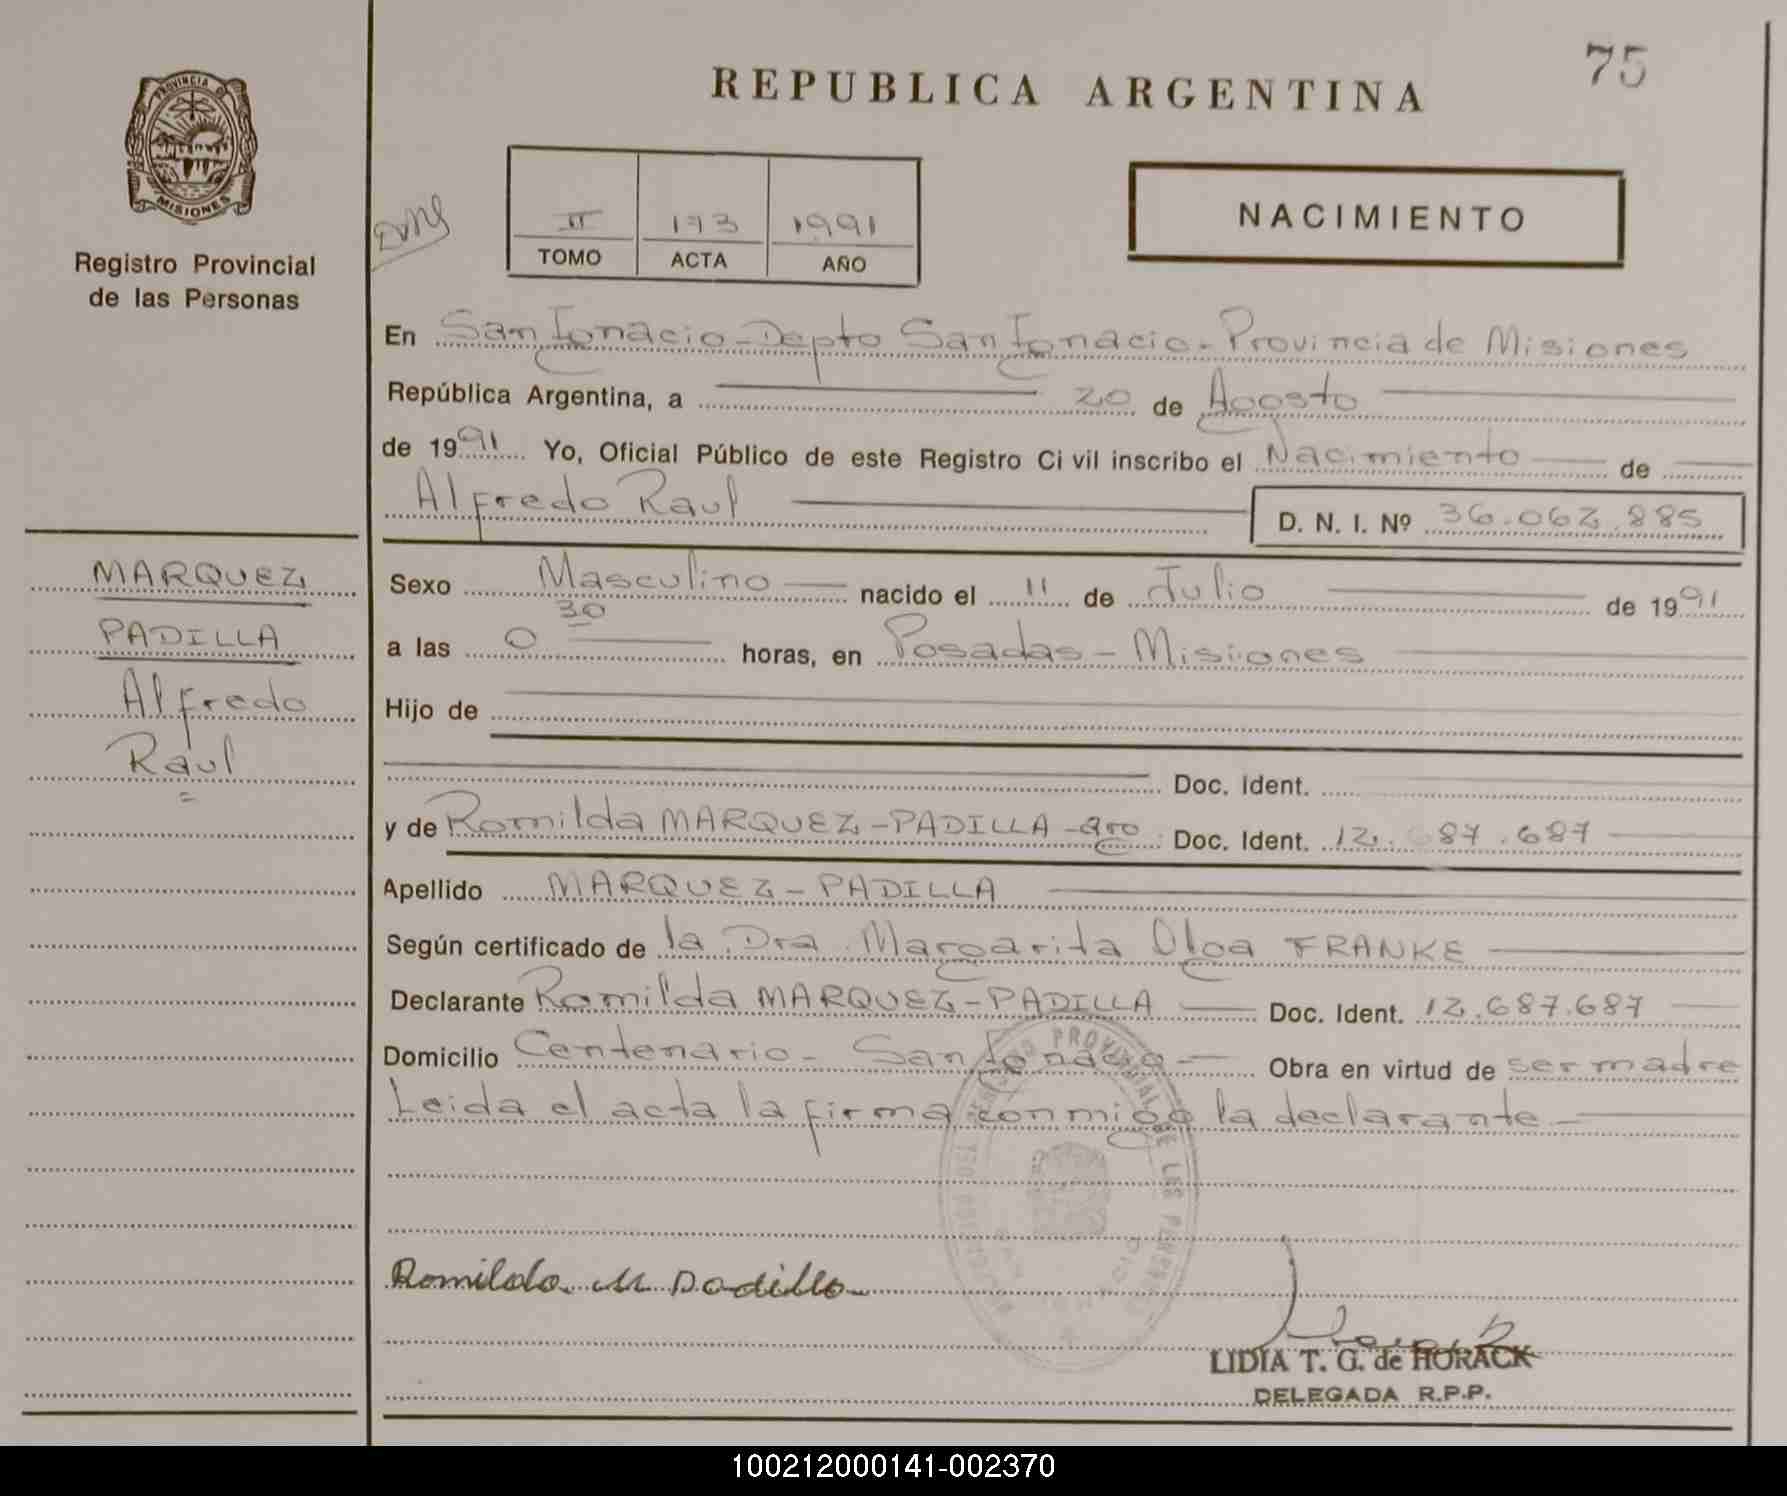 75
REPUBLICA ARGENTINA
PROVINCIA DE
MISIONES
Registro Provincial
de las Personas
II 173 1991
TOMO ACTA AÑO
NACIMIENTO
En San Ignacio - Depto San Ignacio - Provincia de Misiones
República Argentina, a 20 de Agosto
de 1991 Yo, Oficial Público de este Registro Civil inscribo el Nacimiento de
Alfredo Raul D. N. I. Nº 36.062.885
MARQUEZ
PADILLA
Alfredo
Raul
Sexo Masculino nacido el 11 de Julio de 1991
a las 0 30 horas, en Posadas - Misiones
Hijo de
Doc. Ident.
y de Romilda MARQUEZ - PADILLA - Doc. Ident. 12. 87.687
Apellido MARQUEZ - PADILLA
Según certificado de la Dra. Margarita Olga FRANKE
Declarante Romilda MARQUEZ - PADILLA Doc. Ident. 12.687.687
Domicilio Centenario - San Ignacio - Obra en virtud de ser madre
Leida el acta la firma conmigo la declarante -
Romilda M Padilla
LIDIA T. G. de HORACK
DELEGADA R.P.P.
100212000141-002370